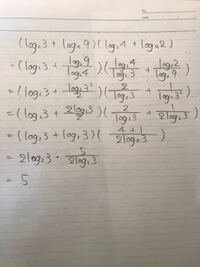 (log₂3 + log₄9)(log₂4 + log₉2)
= (log₂3 + log₂9/log₂4)(log₂4/log₂3 + log₂2/log₂9)
= (log₂3 + log₂3²/2)(2/log₂3 + 1/log₂3²)
= (log₂3 + 2log₂3/2)(2/log₂3 + 1/2log₂3)
= (log₂3 + log₂3)(4+1/2log₂3)
= 2log₂3・5/2log₂3
= 5